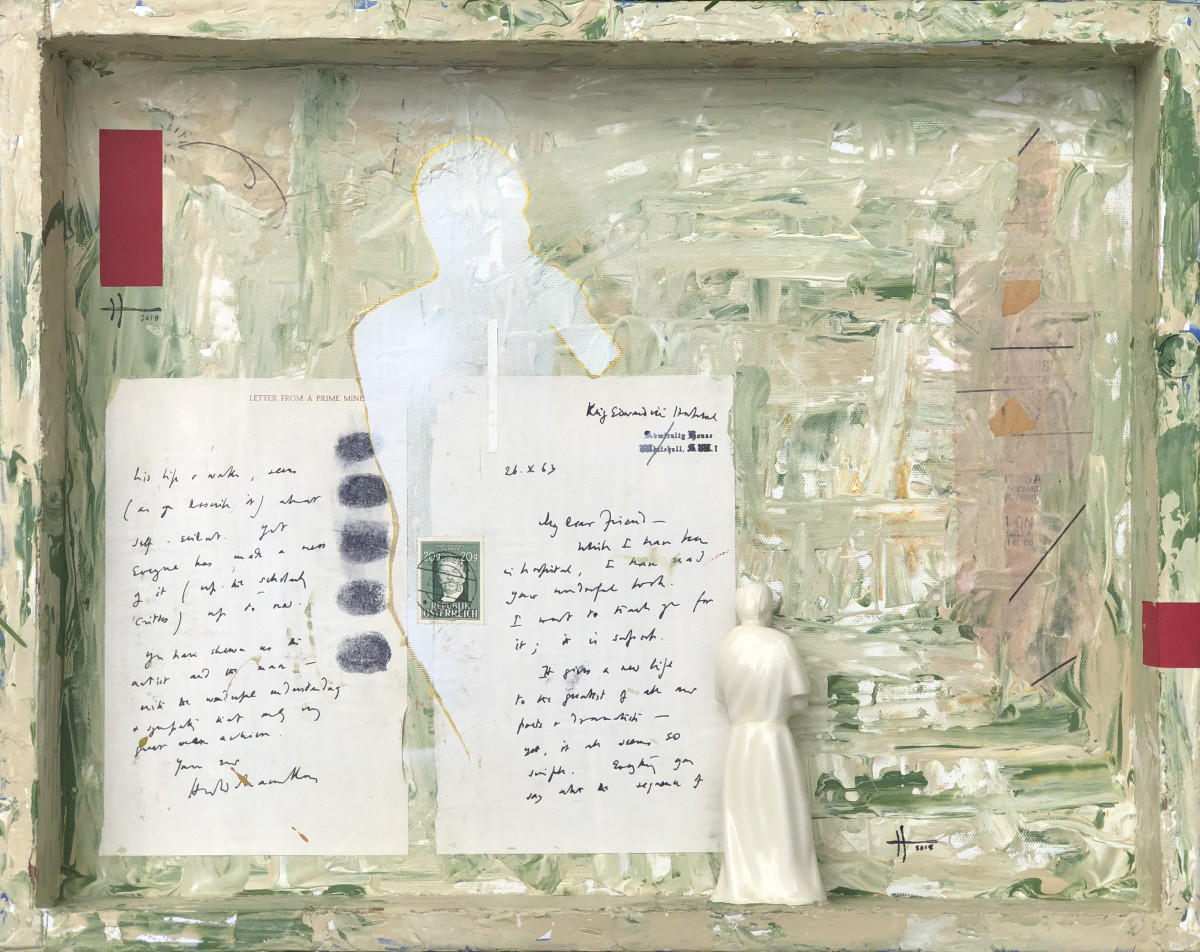 2018
LETTER FROM A PRIME MINIS
his life & works, seems
(as you describe it) almost
self-evident. Yet
Everyone has made a mess
of it (up the scholarly
critics) up to now.
You have shewn us the
artist and the man —
with the wonderful understanding
& sympathy that only very
great can achieve.
Yours ever
King Edward vii Hospital
Admiralty House
Whitehall, S.W.1
26.X.63
My dear Friend —
While I have been
in hospital, I have read
your wonderful book.
I want to thank you for
it; it is superb.
It gives a new life
to the greatest of all our
poets & dramatists —
yet, it all seems so
simple. Everything you
say about the sequence of
20g 20g
REPUBLIK
ÖSTERREICH
2018